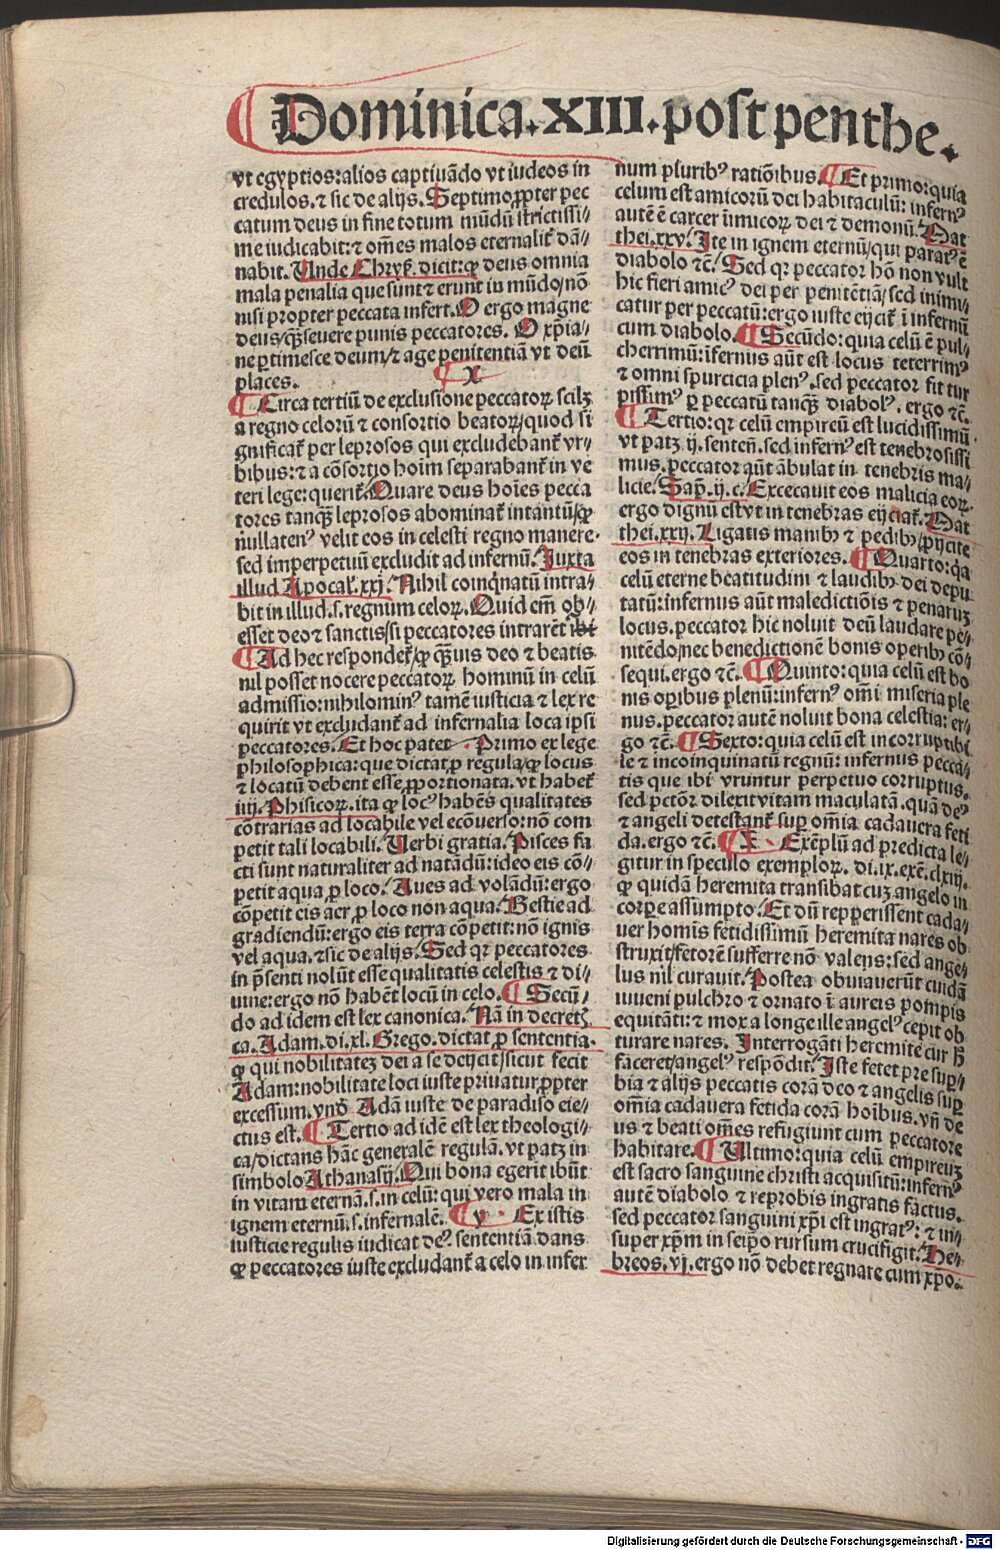 Dominica.XIII.post penthe.
vt egyptios:alios captiuādo vt iudeos in
credulos.⁊ sic de alijs. Septimo ꝓpter pec
catum deus in fine totum mūdū strictissi⸗
me iudicabit:⁊ om̄es malos eternalit̄ dā⸗
nabit. Unde Chrys̄. dicit:ꝙ deus omnia
mala penalia que sunt ⁊ erunt in mūdo/nō
nisi propter peccata infert. O ergo magne
deus/qꝫ̄ seuere punis peccatores. O xp̄ia⸗
ne ꝑtimesce deum/⁊ age penitentiā vt deū
places. X
Circa tertiū de exclusione peccatoꝝ scilꝫ
a regno celorū ⁊ consortio beatoꝝ/quod si
gnificat̄ per leprosos qui excludebant̄ vr⸗
bibus:⁊ a cōsortio hoim̄ separabant̄ in ve
teri lege:querit̄. Quare deus hoīes pecca
tores tanqꝫ̄ leprosos abominat̄ intantū/ꝙ
nullatenꝰ velit eos in celesti regno manere.
sed imperpetuū excludit ad infernū. Iuxta
illud Apocal̄.xxj. Nihil coinqͥnatū intra⸗
bit in illud.s.regnum celoꝝ. Quid em̄ ob⸗
esset deo ⁊ sanctis/si peccatores intrarēt ibi
Ad hec respondet̄/ꝙ qꝫ̄uis deo ⁊ beatis
nil posset nocere peccatoꝝ hominū in celū
admissio:nihilominꝰ tamē iusticia ⁊ lex re
quirit vt excludant̄ ad infernalia loca ipsi
peccatores. Et hoc patet. Primo ex lege
philosophica:que dictat ꝓ regula/ꝙ locus
⁊ locatū debent esse ꝓportionata. vt habet̄
iiij. Phisicoꝝ. ita ꝙ locꝰ habēs qualitates
cōtrarias ad locabile vel ecōuerso:nō com
petit tali locabili. Uerbi gratia. Pisces fa
cti sunt naturaliter ad natādū:ideo eis cō⸗
petit aqua ꝓ loco. Aues ad volādū:ergo
cōpetit eis aer ꝓ loco non aqua. Bestie ad
gradiendū:ergo eis terra cōpetit:nō ignis
vel aqua.⁊ sic de alijs. Sed qꝛ peccatores
in p̄senti nolūt esse qualitatis celestis ⁊ di⸗
uine:ergo nō habēt locū in celo. Secū⸗
do ad idem est lex canonica. Nā in decretꝫ.
ca. Adam.di.xl. Grego.dictat ꝓ sententia.
ꝙ qui nobilitatez dei a se deijcit/sicut fecit
Adam:nobilitate loci iuste priuatur ꝓpter
excessum.vnō Adā iuste de paradiso eie⸗
ctus est. Tertio ad idē est lex theologi⸗
ca/dictans hāc generalē regulā.vt patꝫ in
simbolo Athanasij. Qui bona egerit ibūt
in vitam eternā.s.in celū:qui vero mala in
ignem eternū.s.infernalē. y Ex istis
iusticie regulis iudicat deꝰ sententiā dans
ꝙ peccatores iuste excludant̄ a celo in infer
num pluribꝰ ratiōibus. Et primo:quia
celum est amicorū dei habitaculū:infernꝰ
autē ē carcer inimicoꝝ dei ⁊ demonū. Mat
thei.xxv. Ite in ignem eternū/qui paratꝰ ē
diabolo ⁊c̄. Sed qꝛ peccator hō non vult
hic fieri amicꝰ dei per penitētiā/sed inimi⸗
catur per peccatū:ergo iuste eijcit̄ ī infernū
cum diabolo. Secūdo:quia celū ē pul⸗
cherrimū:īfernus aūt est locus teterrimꝰ
⁊ omni spurcicia plenꝰ.sed peccator fit tur
pissimꝰ ꝑ peccatū tanqꝫ̄ diabolꝰ. ergo ⁊c̄.
Tertio:qꝛ celū empireū est lucidissimū.
vt patꝫ ij.senten̄.sed infernꝰ est tenebrosissi
mus.peccator aūt ābulat in tenebris ma⸗
licie. Sap̄.ij.c. Excecauit eos malicia eoꝝ.
ergo dignū est vt in tenebras eijciat̄. Mat
thei.xxij. Ligatis manibꝫ ⁊ pedibꝫ/proijcite
eos in tenebras exteriores. Quarto:qͣ
celū eterne beatitudini ⁊ laudibꝫ dei depu
tatū:infernus aūt maledictiōis ⁊ penaruꝫ
locus.peccator hic noluit deū laudare pe⸗
nitēdo/nec benedictionē bonis operibꝫ cō⸗
sequi.ergo ⁊c̄. Quinto:quia celū est bo
nis opibus plenū:infernꝰ om̄i miseria ple
nus.peccator autē noluit bona celestia:er⸗
go ⁊c̄. Sexto:quia celū est incorruptibi
le ⁊ incoinquinatū regnū:infernus pecca⸗
tis que ibi vruntur perpetuo corruptus.
sed pctōr dilexit vitam maculatā.quā deꝰ
⁊ angeli detestant̄ suꝑ om̄ia cadauera feti
da.ergo ⁊c̄. X. Exēplū ad predicta le⸗
gitur in speculo exemploꝝ.di.ix.exē.clxiij.
ꝙ quidā heremita transibat cuꝫ angelo in
corꝑe assumpto. Et dū repperissent cada⸗
uer homīs fetidissimū heremita nares ob
struxit/fetorē sufferre nō valens:sed ange⸗
lus nil curauit. Postea obuiauerūt cuidā
iuueni pulchro ⁊ ornato ī aureis pompis
equitāti:⁊ mox a longe ille angelꝰ cepit ob
turare nares. Interrogāti heremite cur h̄
faceret/angelꝰ respōdit. Iste fetet pre suꝑ⸗
bia ⁊ alijs peccatis corā deo ⁊ angelis suꝑ
om̄ia cadauera fetida corā hoībus.vn̄ de
us ⁊ beati om̄es refugiunt cum peccatore
habitare. Ultimo:quia celū empireuꝫ
est sacro sanguine christi acquisitū:infernꝰ
autē diabolo ⁊ reprobis ingratis factus.
sed peccator sanguini xp̄i est ingratꝰ:⁊ in⸗
super xp̄m in seip̄o rursum crucifigit. He⸗
breos.vj.ergo nō debet regnare cum xp̄o.
Digitalisierung gefördert durch die Deutsche Forschungsgemeinschaft - DFG